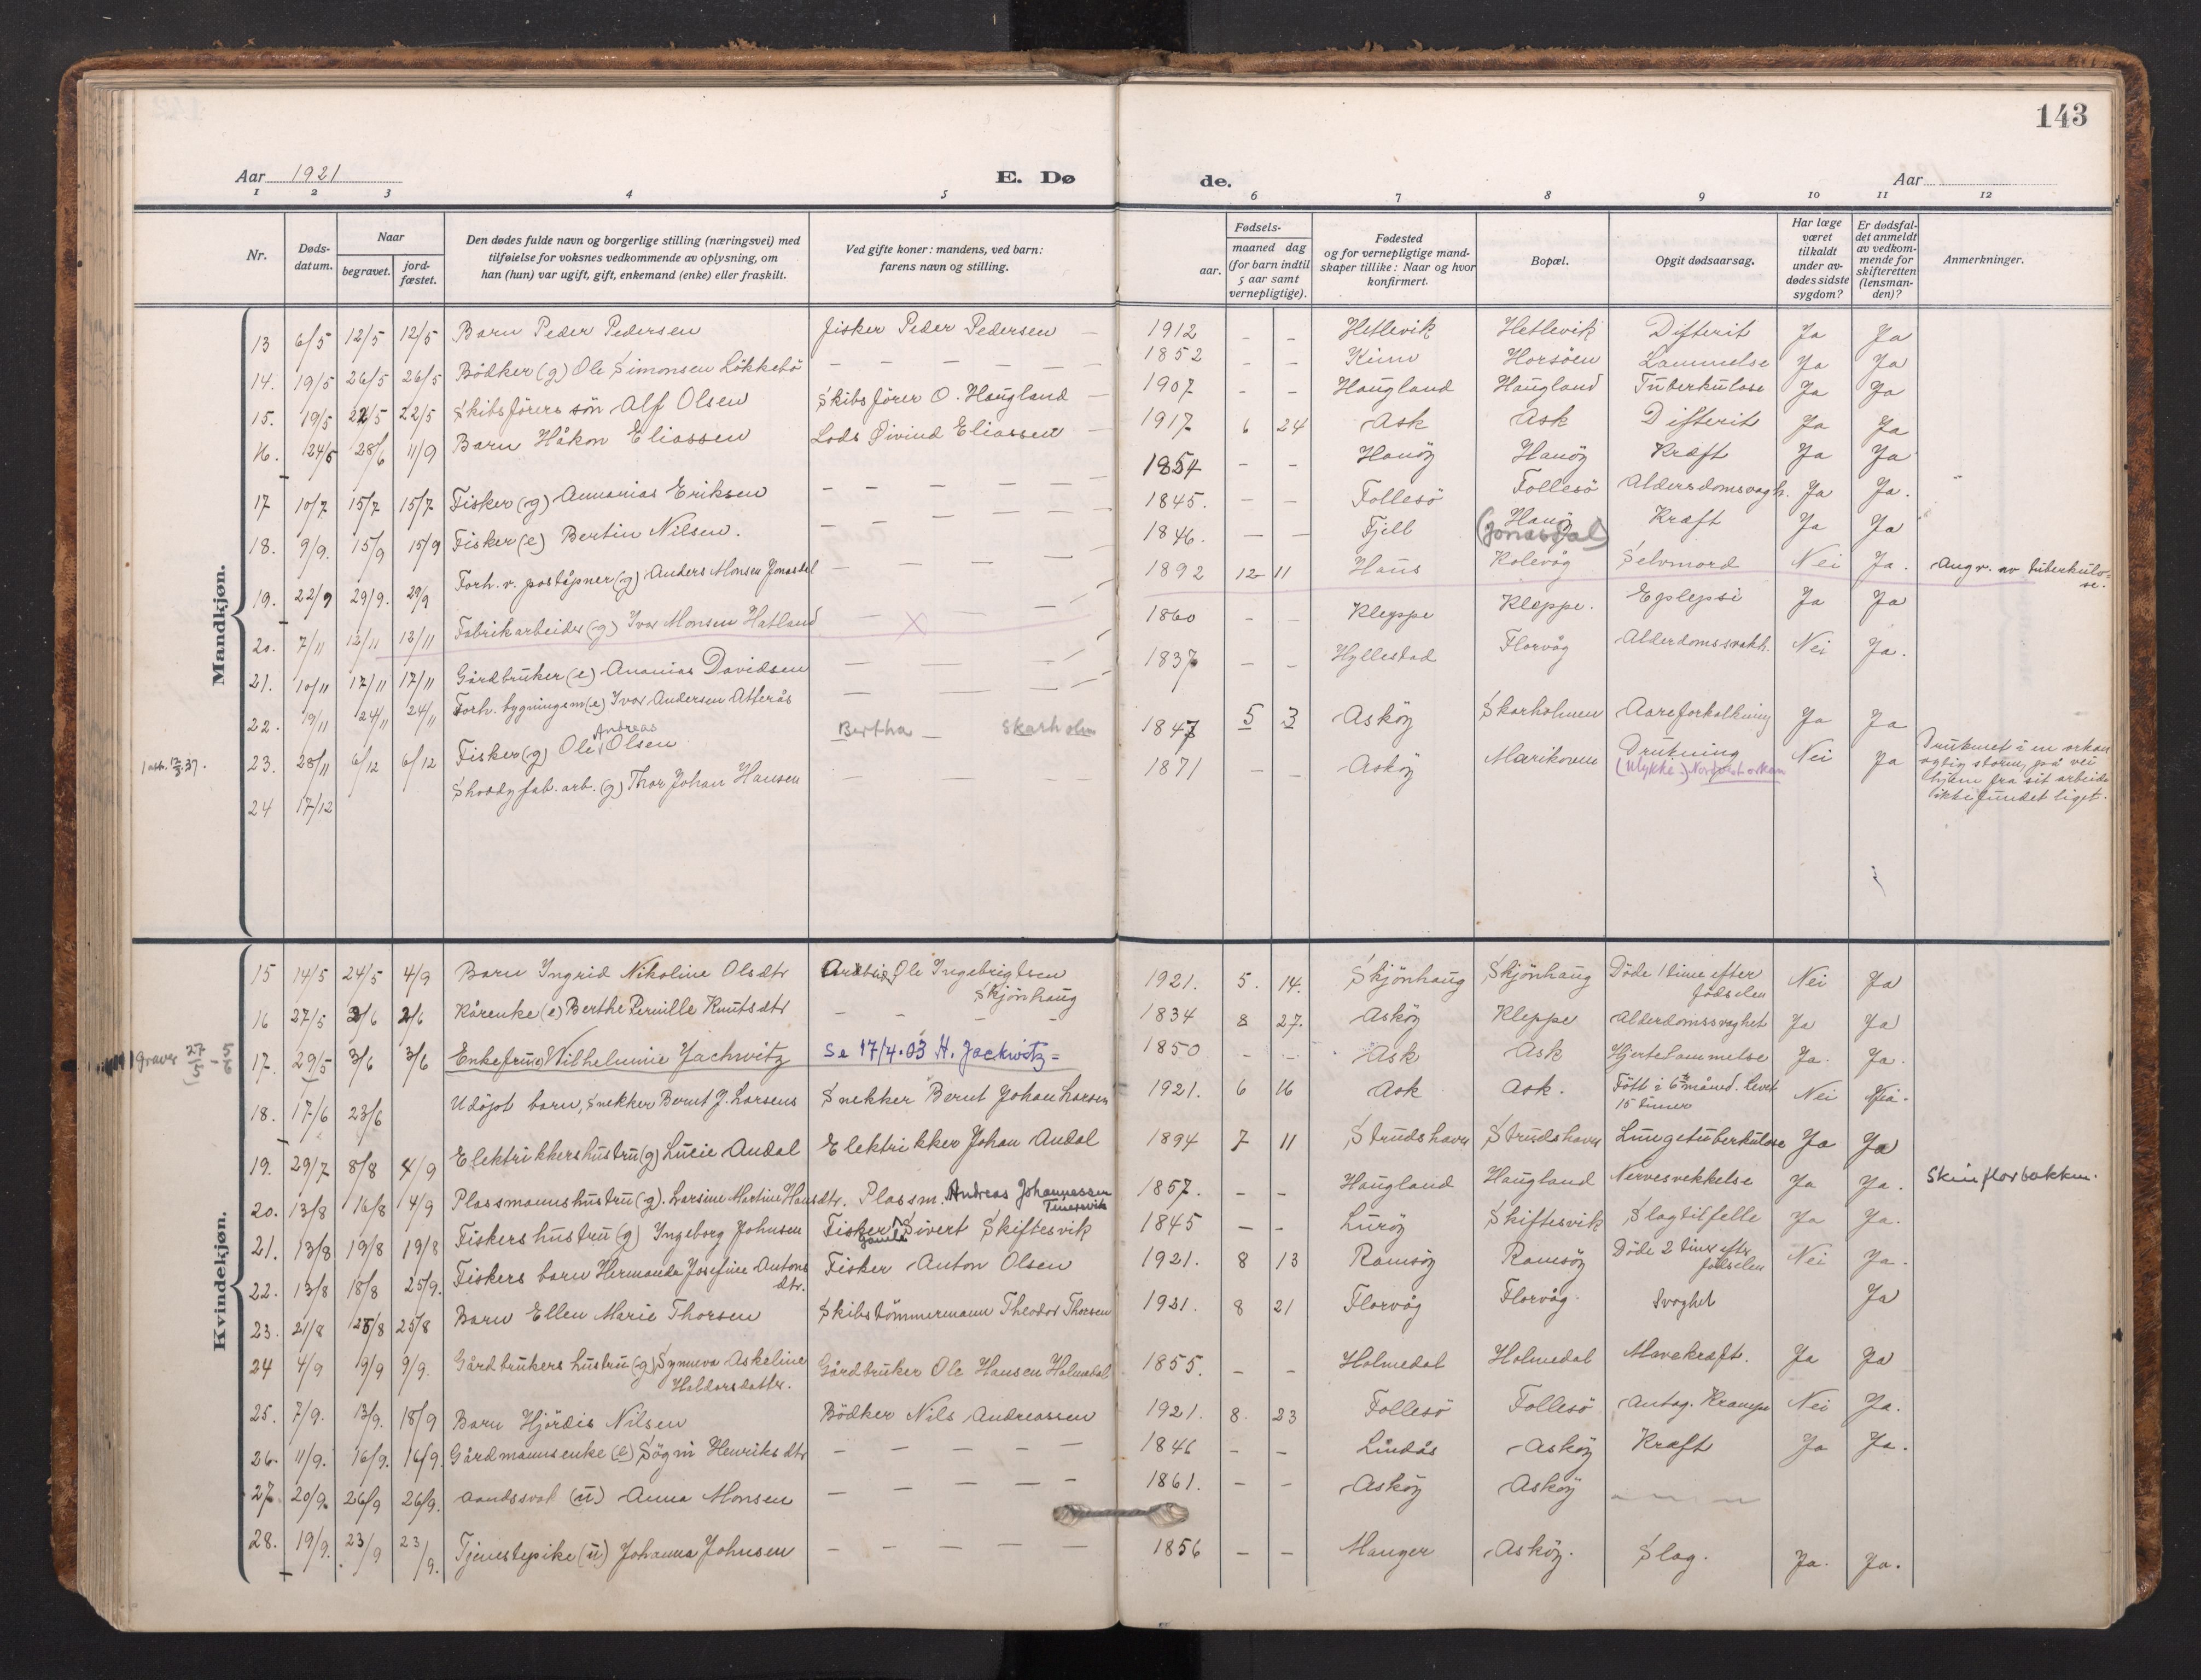 143
Aar 1921
E. Dø
de.
Aar
1 2 3 4 5 6 7 8 9 10 11 12
Nr.
Døds-
datum.
Naar
begravet.
jord-
fæstet.
Den dødes fulde navn og borgerlige stilling (næringsvei) med
tilføielse for voksnes vedkommende av oplysning, om
han (hun) var ugift, gift, enkemand (enke) eller fraskilt.
Ved gifte koner: mandens, ved barn:
farens navn og stilling.
Fødsels-
aar.
maaned dag
(for barn indtil
5 aar samt
vernepligtige).
Fødested
og for vernepligtige mand-
skaper tillike: Naar og hvor
konfirmert.
Bopæl.
Opgit dødsaarsag.
Har læge
været
tilkaldt
under av-
dødes sidste
sygdom?
Er dødsfal-
det anmeldt
av vedkom-
mende for
skifteretten
(lensman-
den)?
Anmerkninger.
Mandkjøn.
13 6/5 12/5 12/5 Barn Peder Pedersen fisker Peder Pedersen — 1912 - - Hetlevik Hetlevik Difterit Ja Ja
14. 19/5 26/5 26/5 Bödker (g) Ole Simonsen Lökkebö — — — — 1852 - - Kinn Horsöen Lammelse Ja Ja
15. 19/5 22/5 22/5 Skibsförers sön Alf Olsen Skibsförer O. Haugland — 1907 - - Haugland Haugland Tuberkulose Ja Ja
16. 24/6 28/6 11/9 Barn Håkon Eliassen Lods Øivind Eliassen — 1917 6 24 Ask Ask Difterit Ja Ja
17 10/7 15/7 15/7 Fisker (g) Annanias Eriksen — — — — 1854 - - Hanöy Hanöy Kræft Ja Ja
18. 9/9. 15/9 15/9 Fisker (e) Bertin Nilsen. — — — — 1845. - - Follesö Follesö Aldersdomsvagh. Ja Ja.
19. 22/9 29/9. 29/9 Forh. v. poståpner (g) Anders Monsen Jonasdal — — — — 1846. — — Fjell Hanöy (Jonasdal) Kræft Ja Ja
20. 7/11 12/11 12/11 Fabrikarbeider (g) Ivar Monsen Hatland — X — — 1892 12 11 Haus Kolevåg Selvmord Nei Ja. Angr. av tuberkulo=
se.
21. 10/11 17/11 17/11 Gårdbruker (e) Ananias Davidsen — — — — 1860 - - Kleppe Kleppe. Eplepsi Ja Ja
22. 19/11 24/11 24/11 Forh. bygningsm (e) Ivar Andersen Atterås — — — — 1837 - - Hyllestad Florvåg Alderdomssvakh. Nei Ja.
1 att. 12/3.37. 23. 28/11 6/12 6/12 Fisker (g) Ole Andreas Olsen Bertha — Skarholm 1847 5 3 Asköy Skarholmen Aareforkalkning Ja Ja
24 17/12 Shoddyfab. arb. (g) Thor Johan Hansen — — — — 1871 - - Asköy Marikoven Drukning Nei Ja Druknet i en orkan
(Ulykke:) Nordvest orkan
agtig storm, på vei
hjem fra sit arbeide
ikke fundet liget.
Kvindekjøn.
15 14/5 24/5 4/9 Barn Ingrid Nikoline Olsdtr Arbeid. Ole Ingebrigtsen
Skjönhaug
1921. 5. 14. Skjönhaug Skjönhaug Döde 1 time efter
födselen
Nei Ja
16 27/5 2/6 2/6 Kårenke (e) Berthe Pernille Knutsdtr — — — — 1834 8 27. Asköy Kleppe Alderdomssvaghet Ja Ja
1 graver 27/5 17. 29/5 3/6 3/6 Enkefru Wilhelmine Jachwitz Se 17/4.03 H. Jackwitz= 1850 - - Ask Ask Hjertelammelse Ja. Ja.
18. 17/6 23/6 Udöpt barn, Snekker Bernt J. Larsens Snekker Bernt Johan Larsen 1921. 6 16 Ask Ask. Född i 6te måned. levet
15 timer
Nei Ja.
19. 29/7 8/8 4/9 Elektrikkershustru (g) Lucie Andal Elektrikker Johan Andal 1894 7 11 Strudshavn Strudshavn Lungetuberkulose Ja Ja
20. 13/8 16/8 4/9 Plassmannshustru (g). Larsine Martine Hansdtr. Plassm. Andreas Johannessen
1857. - - Haugland Haugland Nervesvekkelse Ja Ja. Skinflorbakken.
21. 13/8 19/8 19/8 Fiskers hustru (g) Ingeborg Johnsen Fisker Gamle Sivert Skiftesvik 1845 - - Luröy Skiftesvik Slagtilfelle Ja Ja.
22. 13/8 18/8 25/9. Fiskers barn Hermanda Josefine Antons
dtr.
Fisker Anton Olsen 1921. 8 13 Ramsöy Ramsöy Döde 2 timer efter
födselen
Nei Ja.
23. 21/8 25/8 25/8 Barn Ellen Marie Thorsen Skibstömmermann Theodor Thorsen 1921. 8 21 Florvåg Florvåg. Svaghet Ja
24 4/9 9/9 9/9. Gårdbrukers hustru (g) Synneva Askeline
Haldorsdatter.
Gårdbruker Ole Hansen Holmedal 1855. - - Holmedal Holmedal Mavekræft. Ja Ja
25. 7/9. 13/9. 18/9 Barn Hjördis Nilsen Bödker Nils Andreassen 1921. 8. 23 Follesö Follesö Antag. Krampe Nei Ja.
26. 11/9. 16/9. 16/9. Gårdmannsenke (e) Sögni Henriksdtr — — — — — 1846 - - Lindås Asköy Kræft Ja Ja.
27. 20/9. 26/9 26/9. Aandssvak (u) Anna Monsen — — — — — 1861. - - Asköy Asköy
28. 19/9. 23/9 23/9. Tjenestepike (u) Johanna Johnsen — — — — — 1856 — — Manger Asköy. Slag. Ja. Ja.